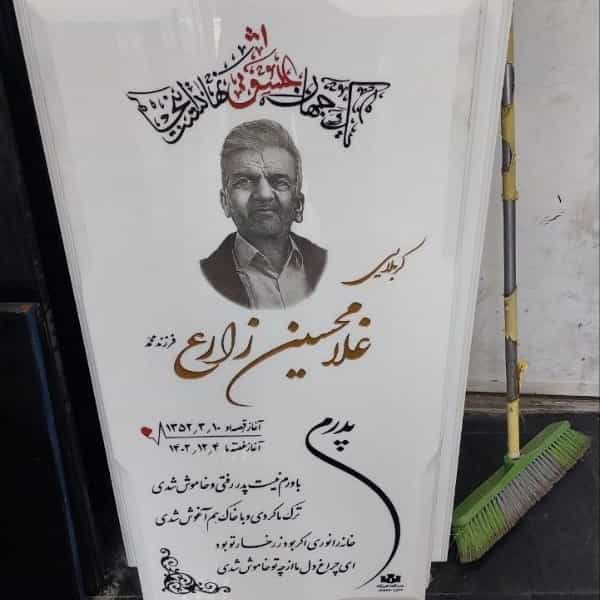 یک جهان عشق نهانست اینجا
کربلایی
غلامحسین زارع
فرزند محمد
آغاز قصه او ۱۳۵۲٫۳٫۱۰
آغاز غصه ما ۱۴۰۲٫۱۲٫۴
پدرم
باورم نیست پدر رفتی و خاموش شدی
ترک ما کردی و با خاک هم آغوش شدی
خانه را نوری اگر بود ز رخسار تو بود
ای چراغ دل ما از چه تو خاموش شدی